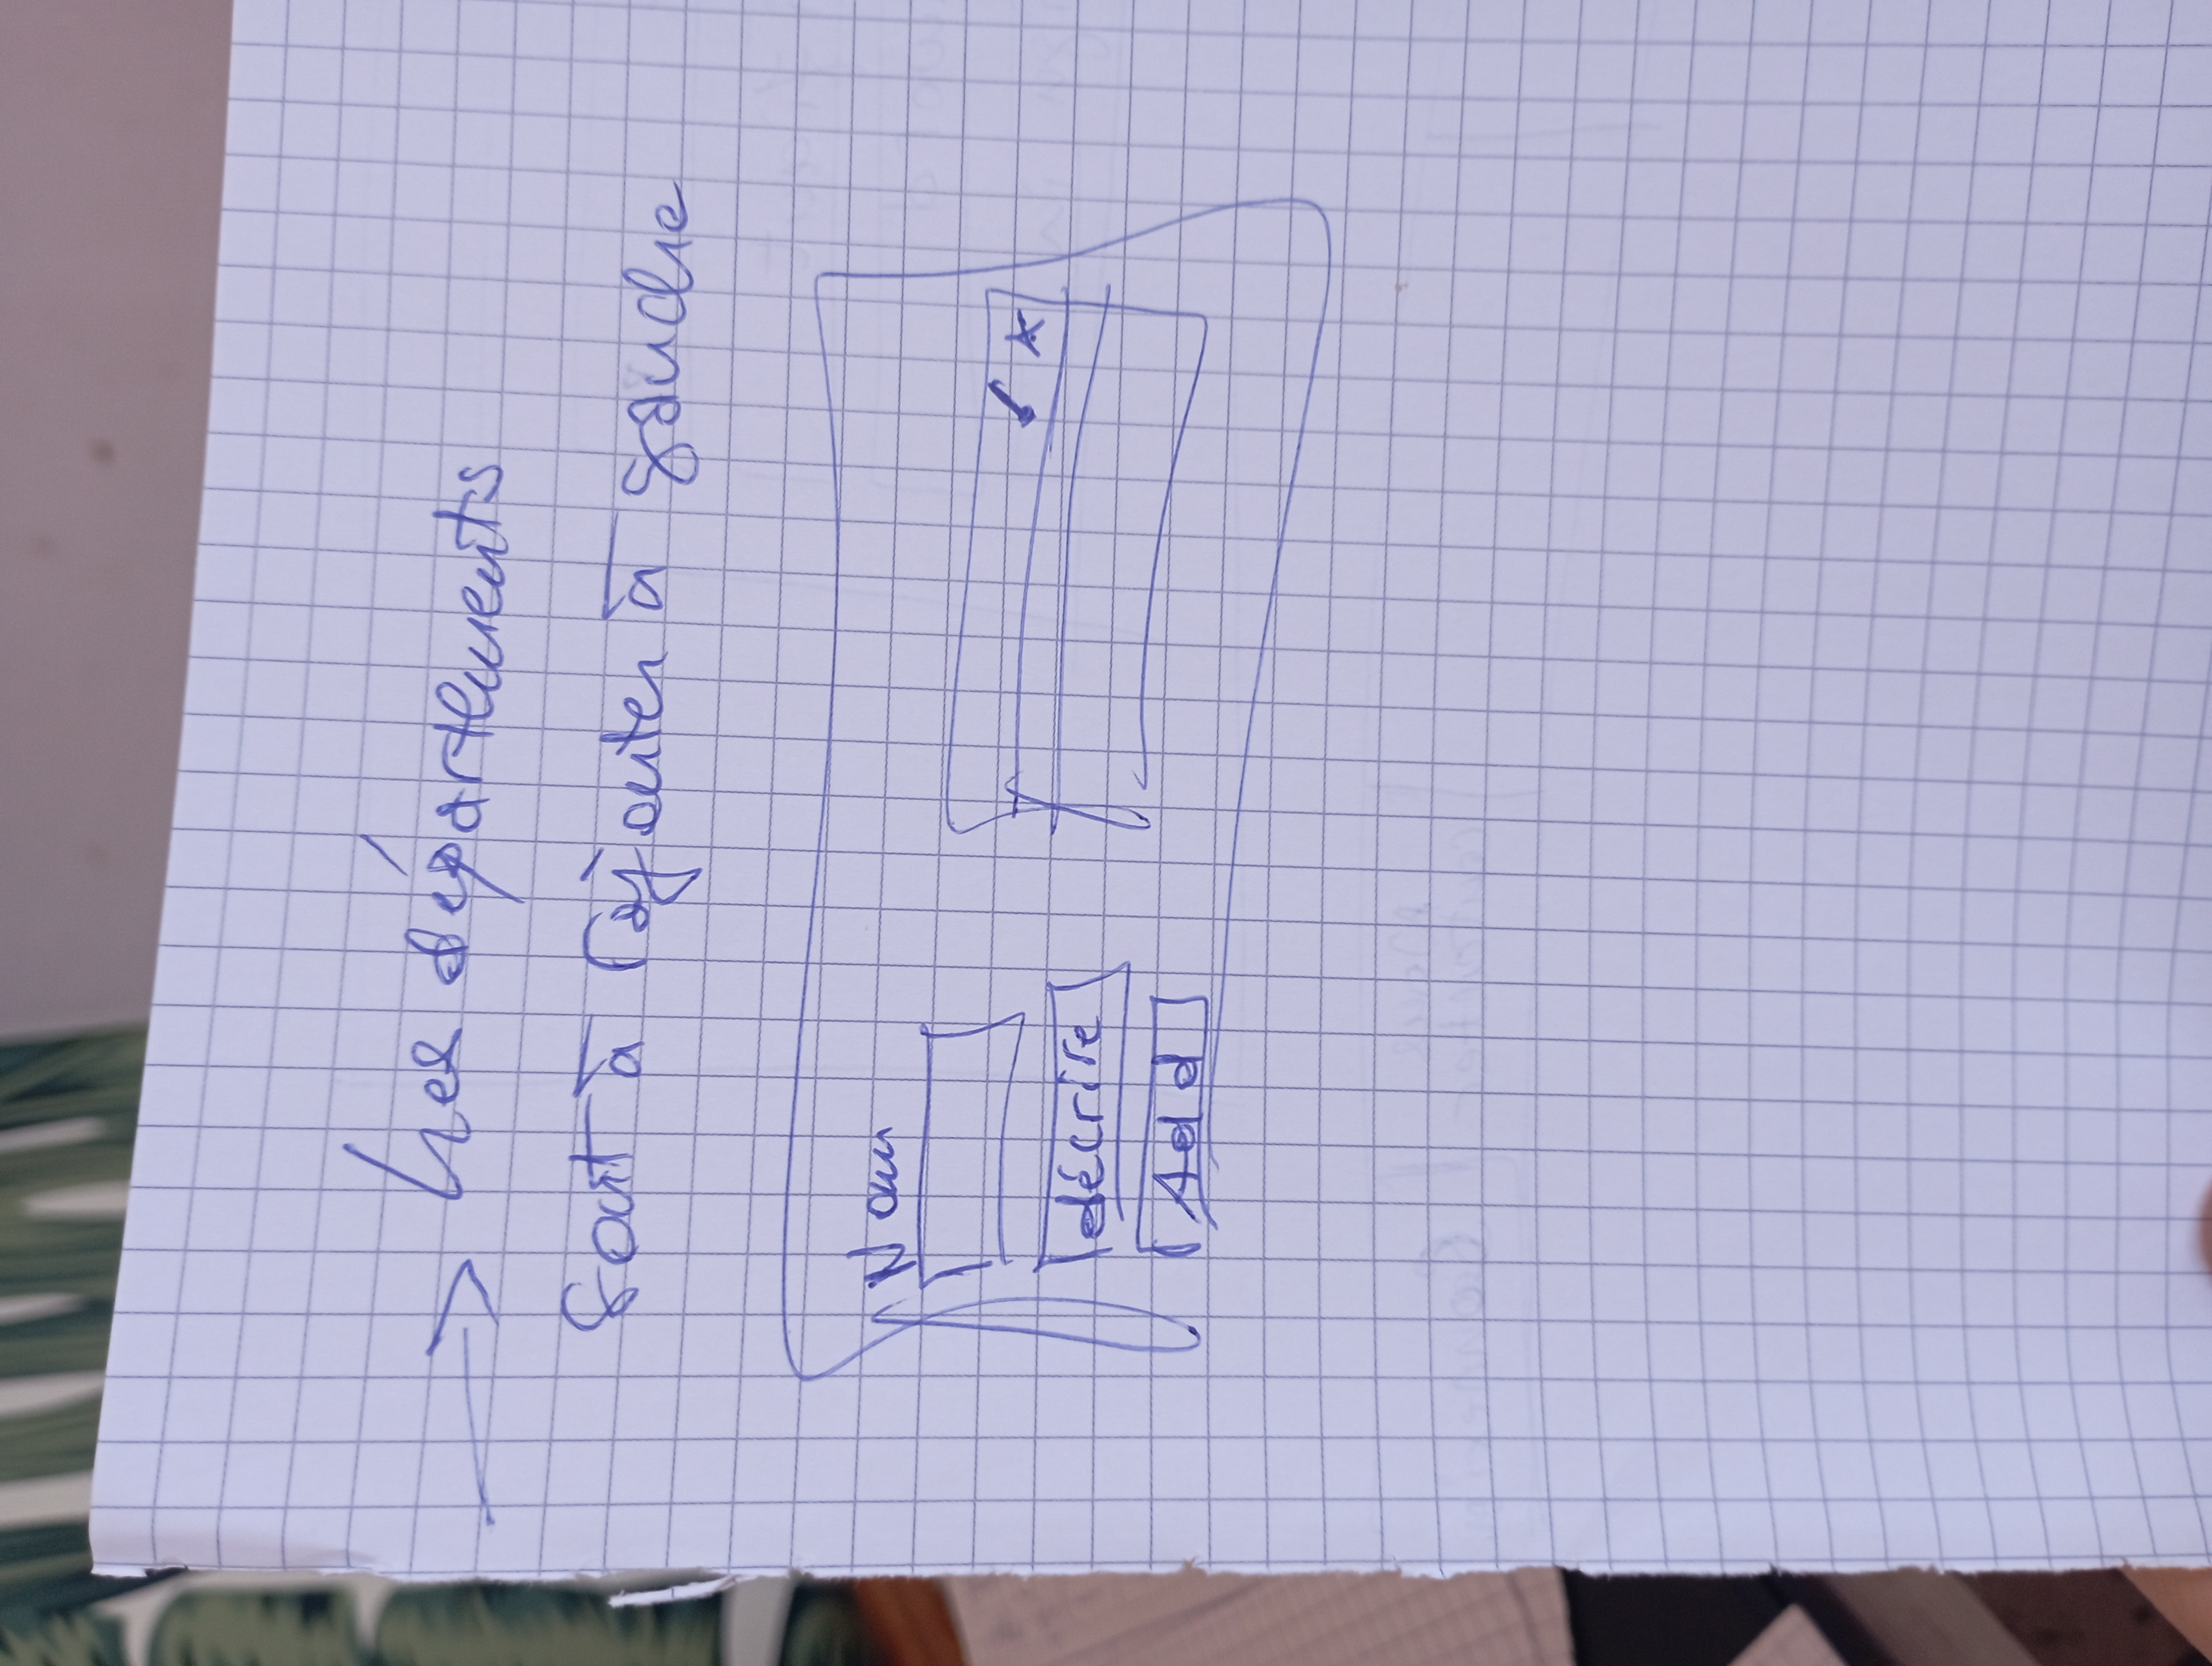 Les départements
sont à rajouter à gauche
Nom
décrire
Add